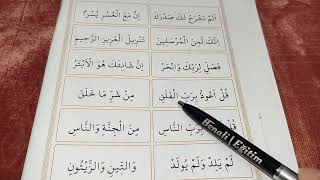 اَلَمْ نَشْرَحْ لَكَ صَدْرَكَ
اِنَّ مَعَ الْعُسْرِ يُسْرًا
اِنَّكَ لَمِنَ الْمُرْسَلِينَ
تَنْزِيلَ الْعَزِيزِ الرَّحِيمِ
فَصَلِّ لِرَبِّكَ وَانْحَرْ
اِنَّ شَانِئَكَ هُوَ الْاَبْتَرُ
قُلْ اَعُوذُ بِرَبِّ الْفَلَقِ
مِنْ شَرِّ مَا خَلَقَ
قُلْ بِرَبِّ النَّاسِ
مِنَ الْجِنَّةِ وَالنَّاسِ
لَمْ يَلِدْ وَلَمْ يُولَدْ
وَالتِّينِ وَالزَّيْتُونِ
Benali Eğitim